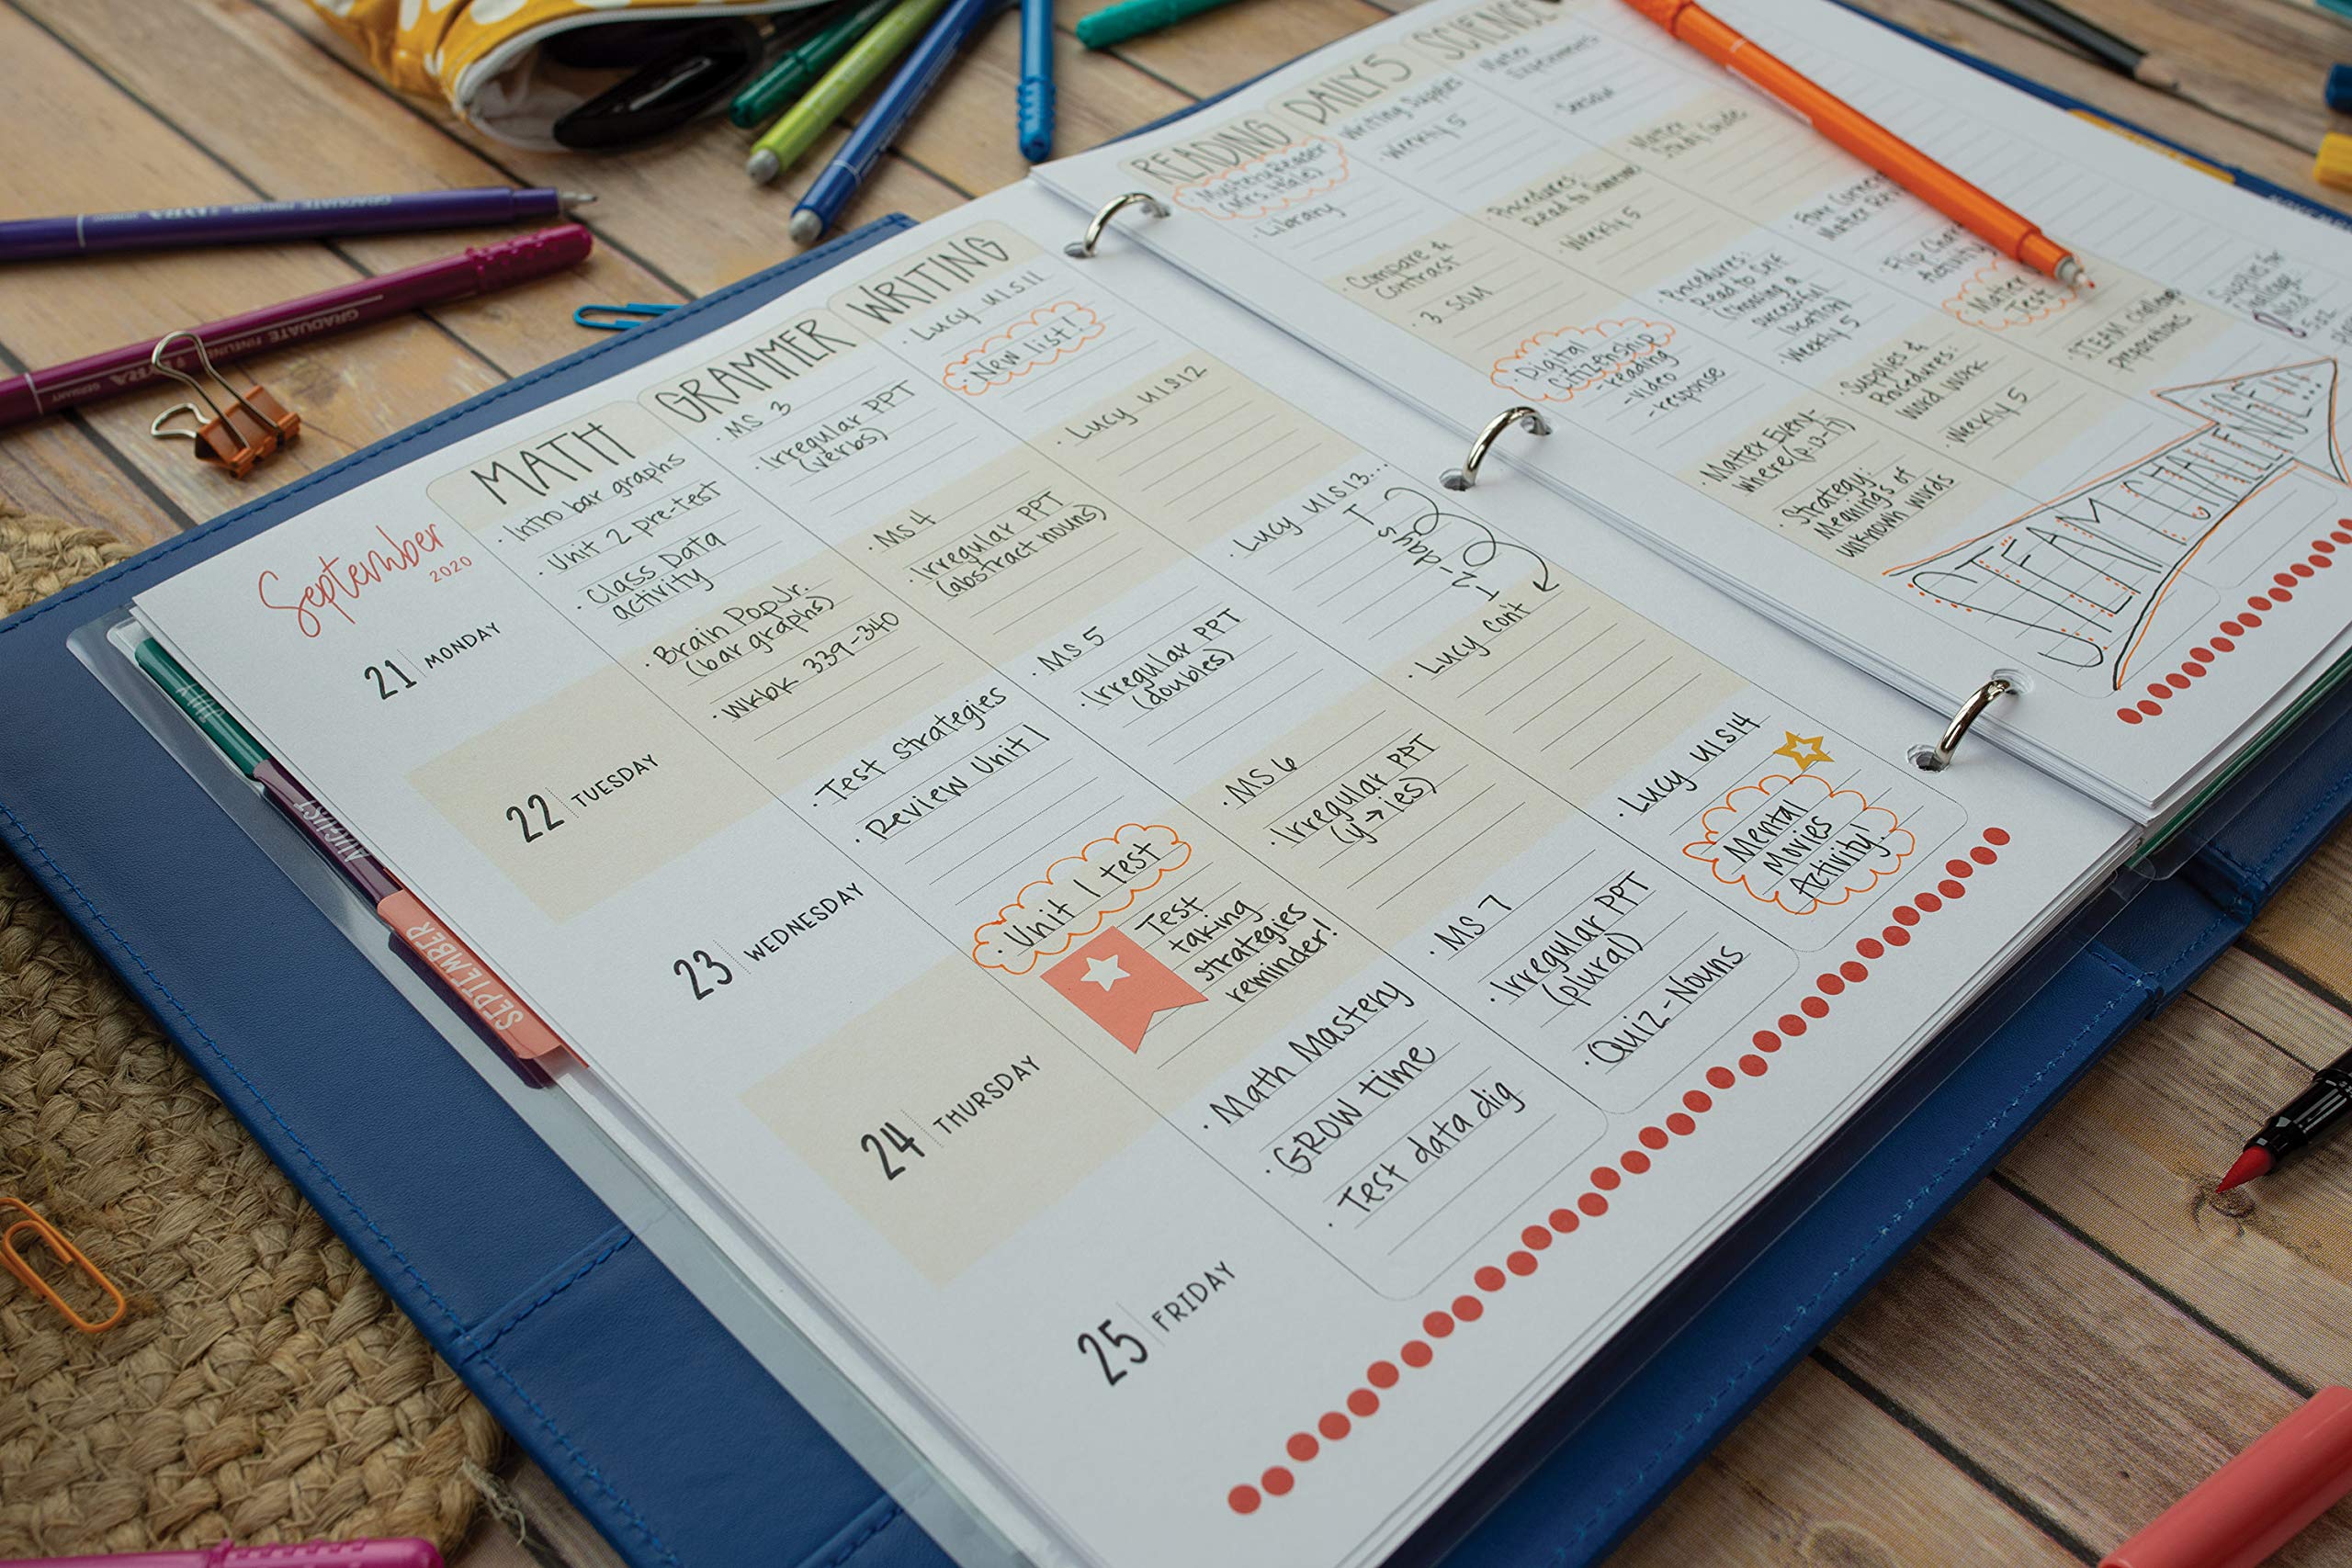 September
2020
MATH
GRAMMER
WRITING
21 MONDAY
· Intro bar graphs
· Unit 2 pre-test
· Class Data
activity
· MS 3
· Irregular PPT
(verbs)
· Lucy U1S11
· New list!
22 TUESDAY
· Brain PopJr.
(bar graphs)
· Wkbk 339-340
· MS 4
· Irregular PPT
(abstract nouns)
· Lucy U1S12
23 WEDNESDAY
· Test Strategies
· Review Unit 1
· MS 5
· Irregular PPT
(doubles)
· Lucy U1S13...
1-2 days
24 THURSDAY
· Unit 1 test
Test
taking
strategies
reminder!
· MS 6
· Irregular PPT
(y→ies)
· Lucy con't
25 FRIDAY
· Math Mastery
· GROW time
· Test data dig
· MS 7
· Irregular PPT
(plural)
· Quiz-Nouns
· Lucy U1S14
· Mental
Movies
Activity!
JULY
AUGUST
SEPTEMBER
READING
DAILY 5
SCIENCE
· Mystery Reader
(Mrs. Hale)
· Library
· Writing Supplies
· Weekly 5
· Matter
· Compare &
Contrast
· 3 SOM
· Procedures:
Read to Someone
· Weekly 5
· Matter
Study Guide
· Digital
Citizenship
-reading
-video
-response
· Procedures:
Read to Self
(choosing a
successful
location)
· Weekly 5
· Flip Chart
Activity
· Matter Every-
where (p.13-17)
· Strategy:
Meanings of
unknown words
· Supplies &
Procedures:
Word Work
· Weekly 5
· Matter
Test
· STEAM challenge
preparations
STEAM CHALLENGE!!!
GRADUATE LYRA
GRADUATE FINELINER LYRA GERMANY